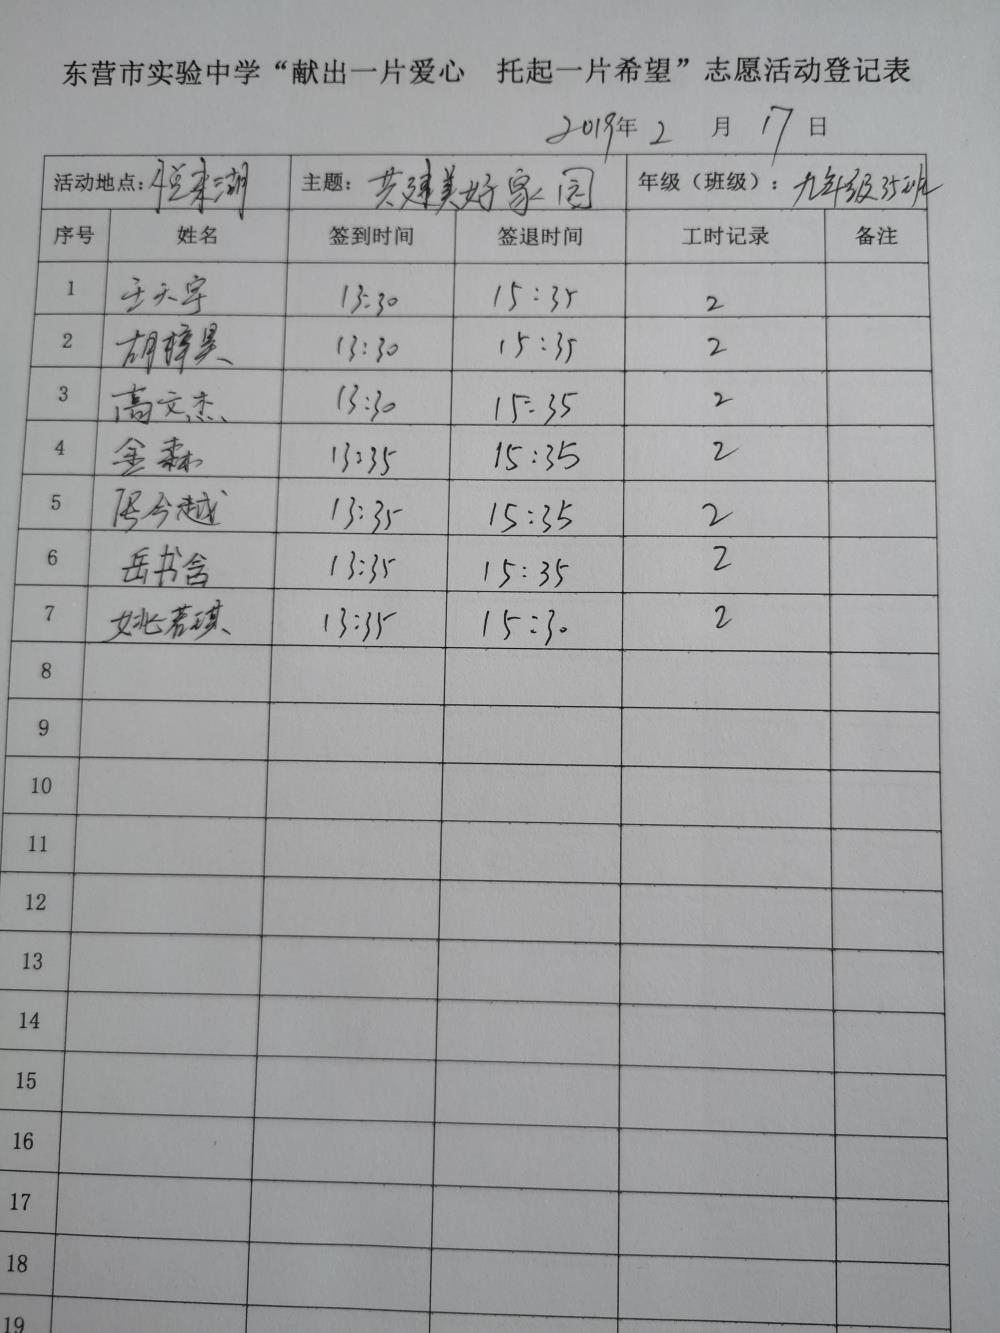 东营市实验中学“献出一片爱心 托起一片希望”志愿活动登记表
2019年 2 月 17 日
活动地点: 悦来湖 主题: 共建美好家园 年级（班级）: 九年级35班
序号 姓名 签到时间 签退时间 工时记录 备注
1 王天宇 13:30 15:35 2
2 胡梓昊 13:30 15:35 2
3 高文杰 13:30 15:35 2
4 金森 13:35 15:35 2
5 张今越 13:35 15:35 2
6 岳书含 13:35 15:35 2
7 姚若琪 13:35 15:30 2
8
9
10
11
12
13
14
15
16
17
18
19